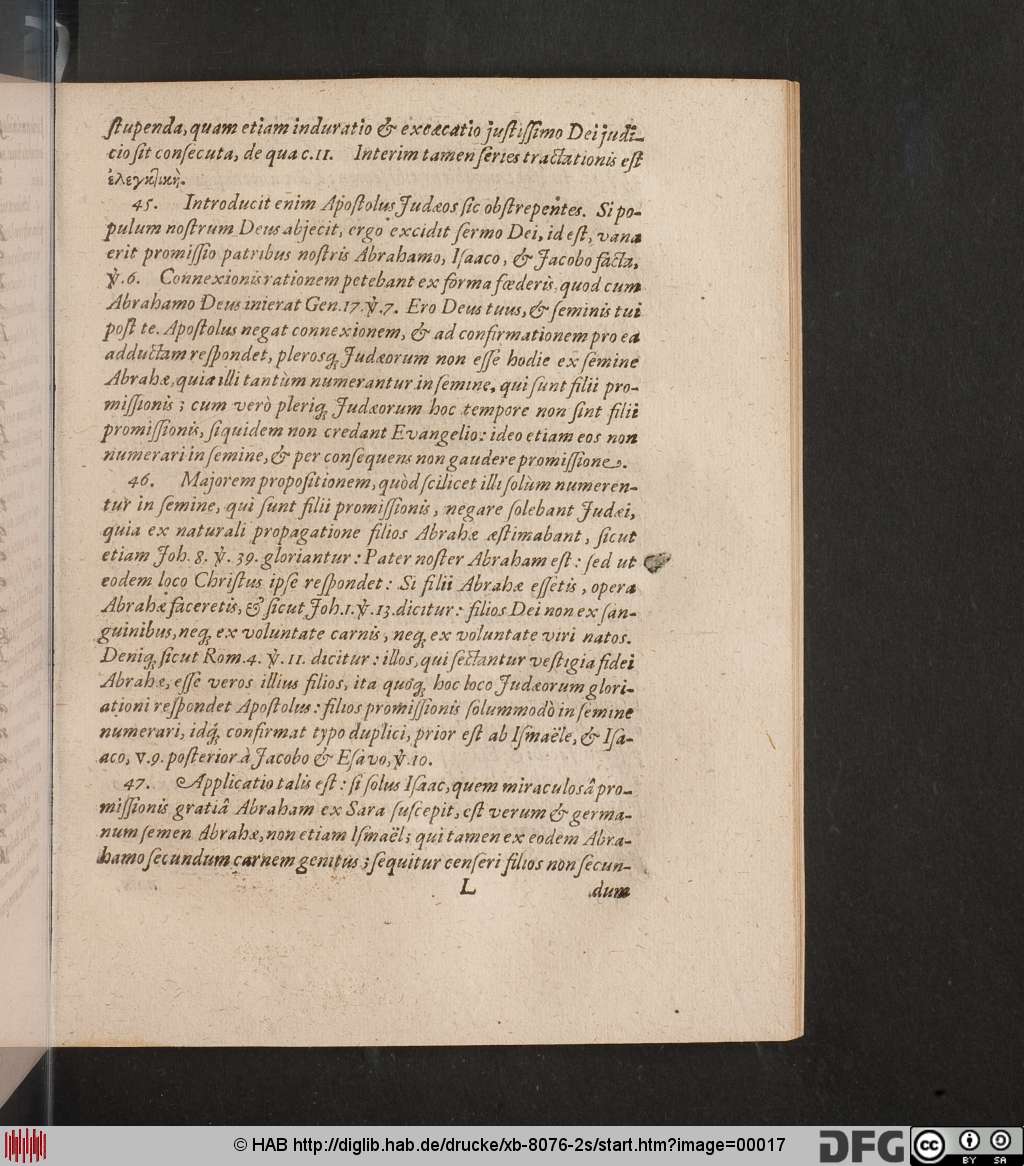 ſtupenda, quam etiam induratio & excæcatio juſtiſſimo Dei judi-
cio ſit conſecuta, de qua c. 11. Interim tamen ſeries tractationis eſt
ἐλεγκικὴ.
45. Introducit enim Apoſtolus Judæos ſic obſtrepentes. Si po-
pulum noſtrum Deus abjecit, ergo excidit ſermo Dei, id eſt, vana
erit promiſſio patribus noſtris Abrahamo, Iſaaco, & Jacobo facta,
ỳ. 6. Connexionis rationem petebant ex forma fœderis, quod cum
Abrahamo Deus inierat Gen. 17. ỳ. 7. Ero Deus tuus, & ſeminis tui
poſt te. Apoſtolus negat connexionem, & ad confirmationem pro ea
adductam reſpondet, plerosq; Judæorum non eſſe hodie ex ſemine
Abrahæ, quia illi tantùm numerantur in ſemine, qui ſunt filii pro-
miſſionis; cum verò pleriq; Judæorum hoc tempore non ſint filii
promiſſionis, ſiquidem non credant Evangelio: ideo etiam eos non
numerari in ſemine, & per conſequens non gaudere promiſſione.
46. Majorem propoſitionem, quòd ſcilicet illi ſolùm numeren-
tur in ſemine, qui ſunt filii promiſſionis, negare ſolebant Judæi,
quia ex naturali propagatione filios Abrahæ æſtimabant, ſicut
etiam Joh. 8. ỳ. 39. gloriantur: Pater noſter Abraham eſt: ſed ut
eodem loco Chriſtus ipſe reſpondet: Si filii Abrahæ eſſetis, opera
Abrahæ faceretis, & ſicut Joh. 1. ỳ. 13. dicitur: filios Dei non ex ſan-
guinibus, neq; ex voluntate carnis, neq; ex voluntate viri natos.
Deniq; ſicut Rom. 4. ỳ. 11. dicitur: illos, qui ſectantur veſtigia fidei
Abrahæ, eſſe veros illius filios, ita quoq; hoc loco Judæorum glori-
ationi reſpondet Apoſtolus: filios promiſſionis ſolummodò in ſemine
numerari, idq́; confirmat typo duplici, prior eſt ab Iſmaële, & Iſa-
aco, v. 9. poſterior à Jacobo & Eſavo, ỳ. 10.
47. Applicatio talis eſt: ſi ſolus Iſaac, quem miraculosâ pro-
miſſionis gratiâ Abraham ex Sara ſuſcepit, eſt verum & germa-
num ſemen Abrahæ, non etiam Iſmaël; qui tamen ex eodem Abra-
hamo ſecundum carnem genitus; ſequitur cenſeri filios non ſecun-
L dum
© HAB http://diglib.hab.de/drucke/xb-8076-2s/start.htm?image=00017
DFG
cc BY SA